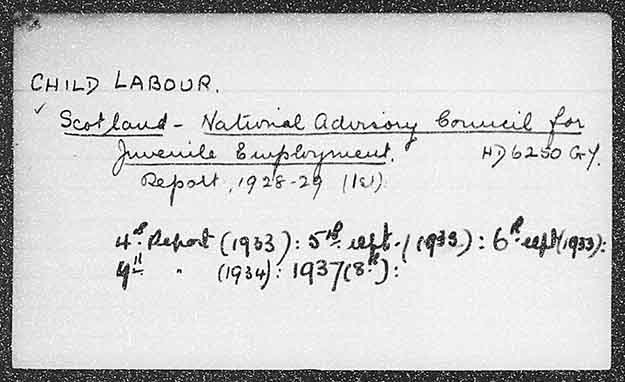 CHILD LABOUR.
✓ Scotland - National Advisory Council for
Juvenile Employment. HD6250 G.Y.
Report, 1928-29 (1st)
4th Report (1933): 5th rept. (1933): 6th rept (1933):
" (1934): 1937 (8th):